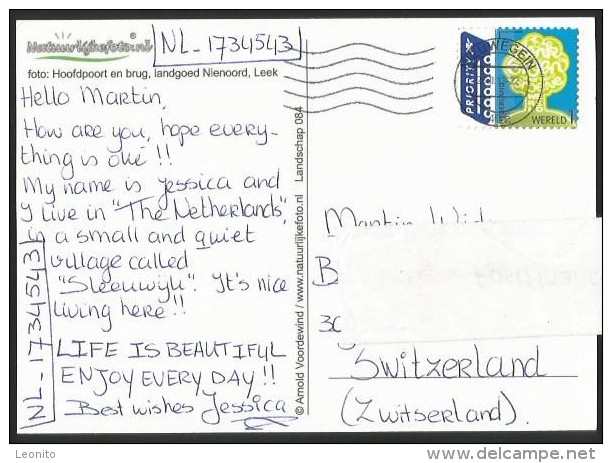 Natuurlijkefoto.nl
NL-1734543
foto: Hoofdpoort en brug, landgoed Nienoord, Leek
Hello Martin,
How are you, hope every-
thing is oké !!
My name is Jessica and
I live in "The Netherlands",
in a small and quiet
village called
"Sleeuwijk". It's nice
living here !!
LIFE IS BEAUTIFUL
ENJOY EVERY DAY !!
Best wishes Jessica
NL-1734543
© Arnold Voordewind / www.natuurlijkefoto.nl Landschap 084
PRIORITY
WEGEIN
WERELD 1
Martin
B
30
Switzerland
(Zwitserland).
delcampe.net